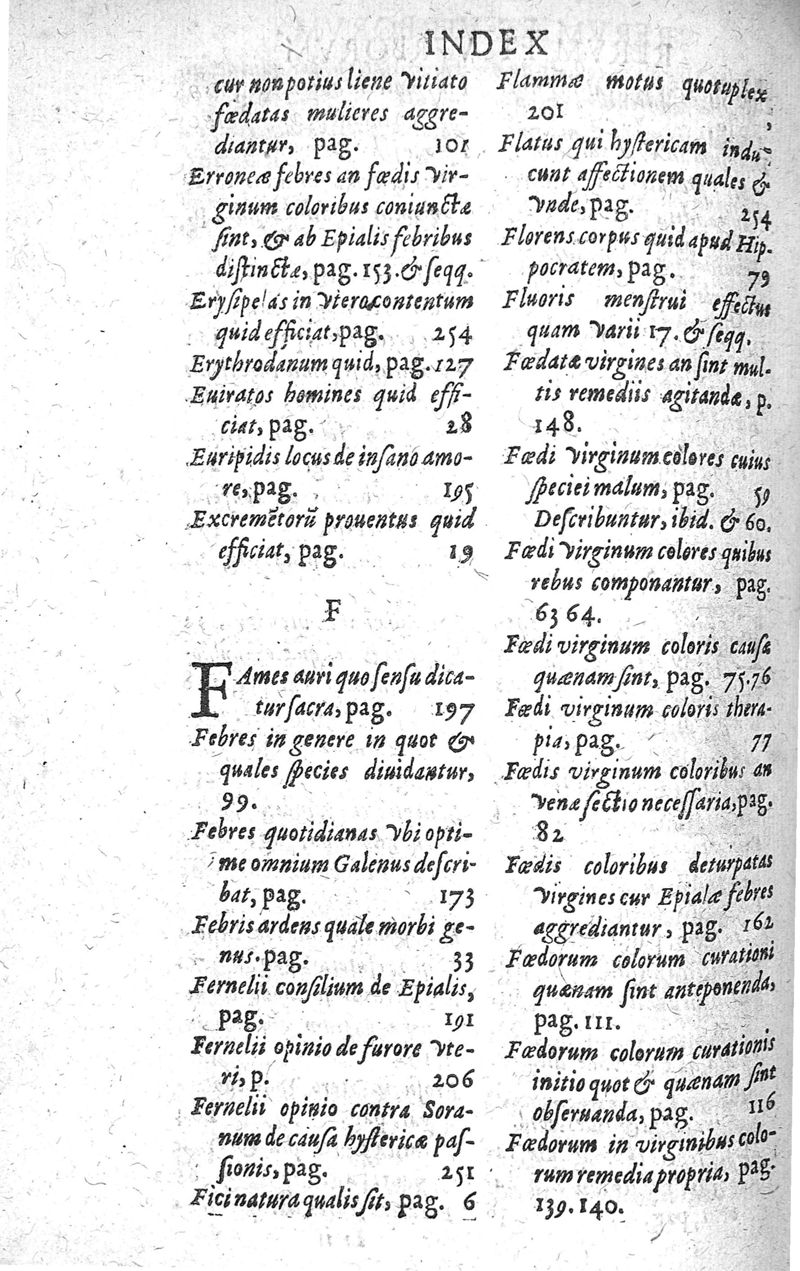 INDEX
cur non potius liene vitiato
fœdatas mulieres aggre-
diantur, pag. 101
Erroneæ febres an fœdis vir-
ginum coloribus coniunctæ
ſint, & ab Epialis febribus
diſtinctæ, pag. 153. & ſeqq.
Eryſipelas in vtero contentum
quid efficiat, pag. 254
Erythrodanum quid, pag. 127
Euiratos homines quid effi-
ciat, pag. 28
Euripidis locus de inſano amo-
re, pag. 195
Excremẽtorũ prouentus quid
efficiat, pag. 19
F
FAmes auri quo ſenſu dica-
tur ſacra, pag. 197
Febres in genere in quot &
quales ſpecies diuidantur,
99.
Febres quotidianas vbi opti-
me omnium Galenus deſcri-
bat, pag. 173
Febris ardens quale morbi ge-
nus. pag. 33
Fernelii conſilium de Epialis,
pag. 191
Fernelii opinio de furore vte-
ri, p. 206
Fernelii opinio contra Sora-
num de cauſa hyſtericæ paſ-
ſionis, pag. 251
Fici natura qualis ſit, pag. 6
Flammæ motus quotuplex,
201
Flatus qui hyſtericam indu-
cunt affectionem quales &
vnde, pag. 254
Florens corpus quid apud Hip-
pocratem, pag. 79
Fluoris menſtrui effectus
quam varii 17. & ſeqq.
Fœdatæ virgines an ſint mul-
tis remediis agitandæ, p.
148.
Fœdi virginum colores cuius
ſpeciei malum, pag. 59
Deſcribuntur, ibid. & 60.
Fœdi virginum colores quibus
rebus componantur, pag.
63 64.
Fœdi virginum coloris cauſæ
quænam ſint, pag. 75.76
Fœdi virginum coloris thera-
pia, pag. 77
Fœdis virginum coloribus an
venæ ſectio neceſſaria, pag.
82
Fœdis coloribus deturpatas
virgines cur Epialæ febres
aggrediantur, pag. 162
Fœdorum colorum curationi
quænam ſint anteponenda,
pag. 111.
Fœdorum colorum curationis
initio quot & quænam ſint
obſeruanda, pag. 116
Fœdorum in virginibus colo-
rum remedia propria, pag.
139. 140.